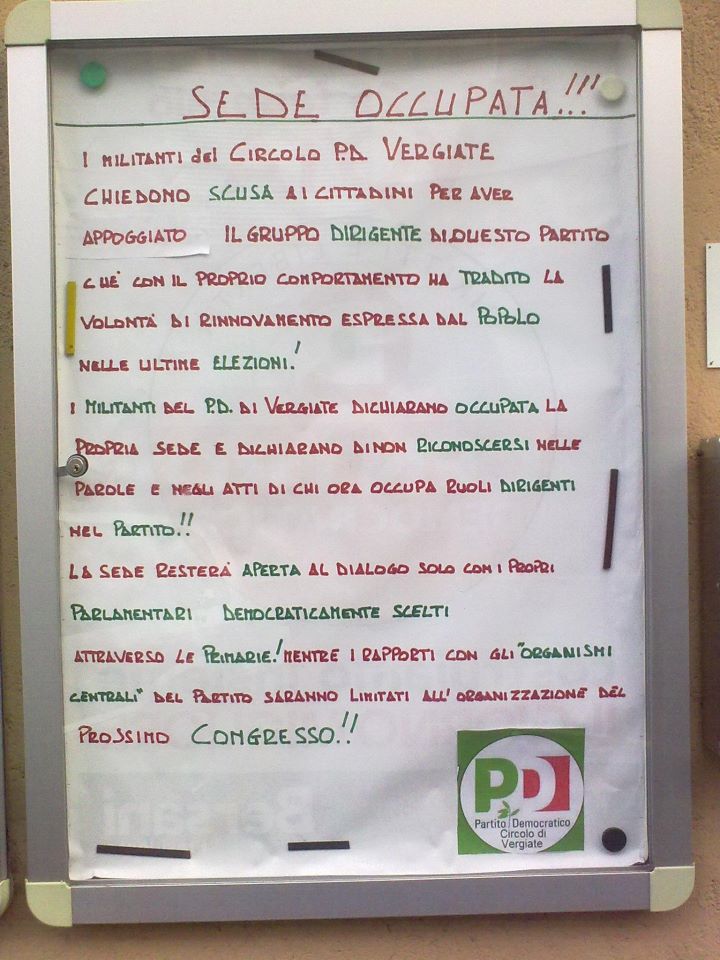 SEDE OCCUPATA!!!
I MILITANTI del CIRCOLO P.D. VERGIATE
CHIEDONO SCUSA AI CITTADINI PER AVER
APPOGGIATO IL GRUPPO DIRIGENTE DI QUESTO PARTITO
CHE' CON IL PROPRIO COMPORTAMENTO HA TRADITO LA
VOLONTÀ DI RINNOVAMENTO ESPRESSA DAL POPOLO
NELLE ULTIME ELEZIONI!
I MILITANTI DEL P.D. DI VERGIATE DICHIARANO OCCUPATA LA
PROPRIA SEDE E DICHIARANO DI NON RICONOSCERSI NELLE
PAROLE E NEGLI ATTI DI CHI ORA OCCUPA RUOLI DIRIGENTI
NEL PARTITO!!
LA SEDE RESTERÀ APERTA AL DIALOGO SOLO CON I PROPRI
PARLAMENTARI DEMOCRATICAMENTE SCELTI
ATTRAVERSO LE PRIMARIE! MENTRE I RAPPORTI CON GLI "ORGANISMI
CENTRALI" DEL PARTITO SARANNO LIMITATI ALL'ORGANIZZAZIONE DEL
PROSSIMO CONGRESSO!!
PD
Partito Democratico
Circolo di
Vergiate